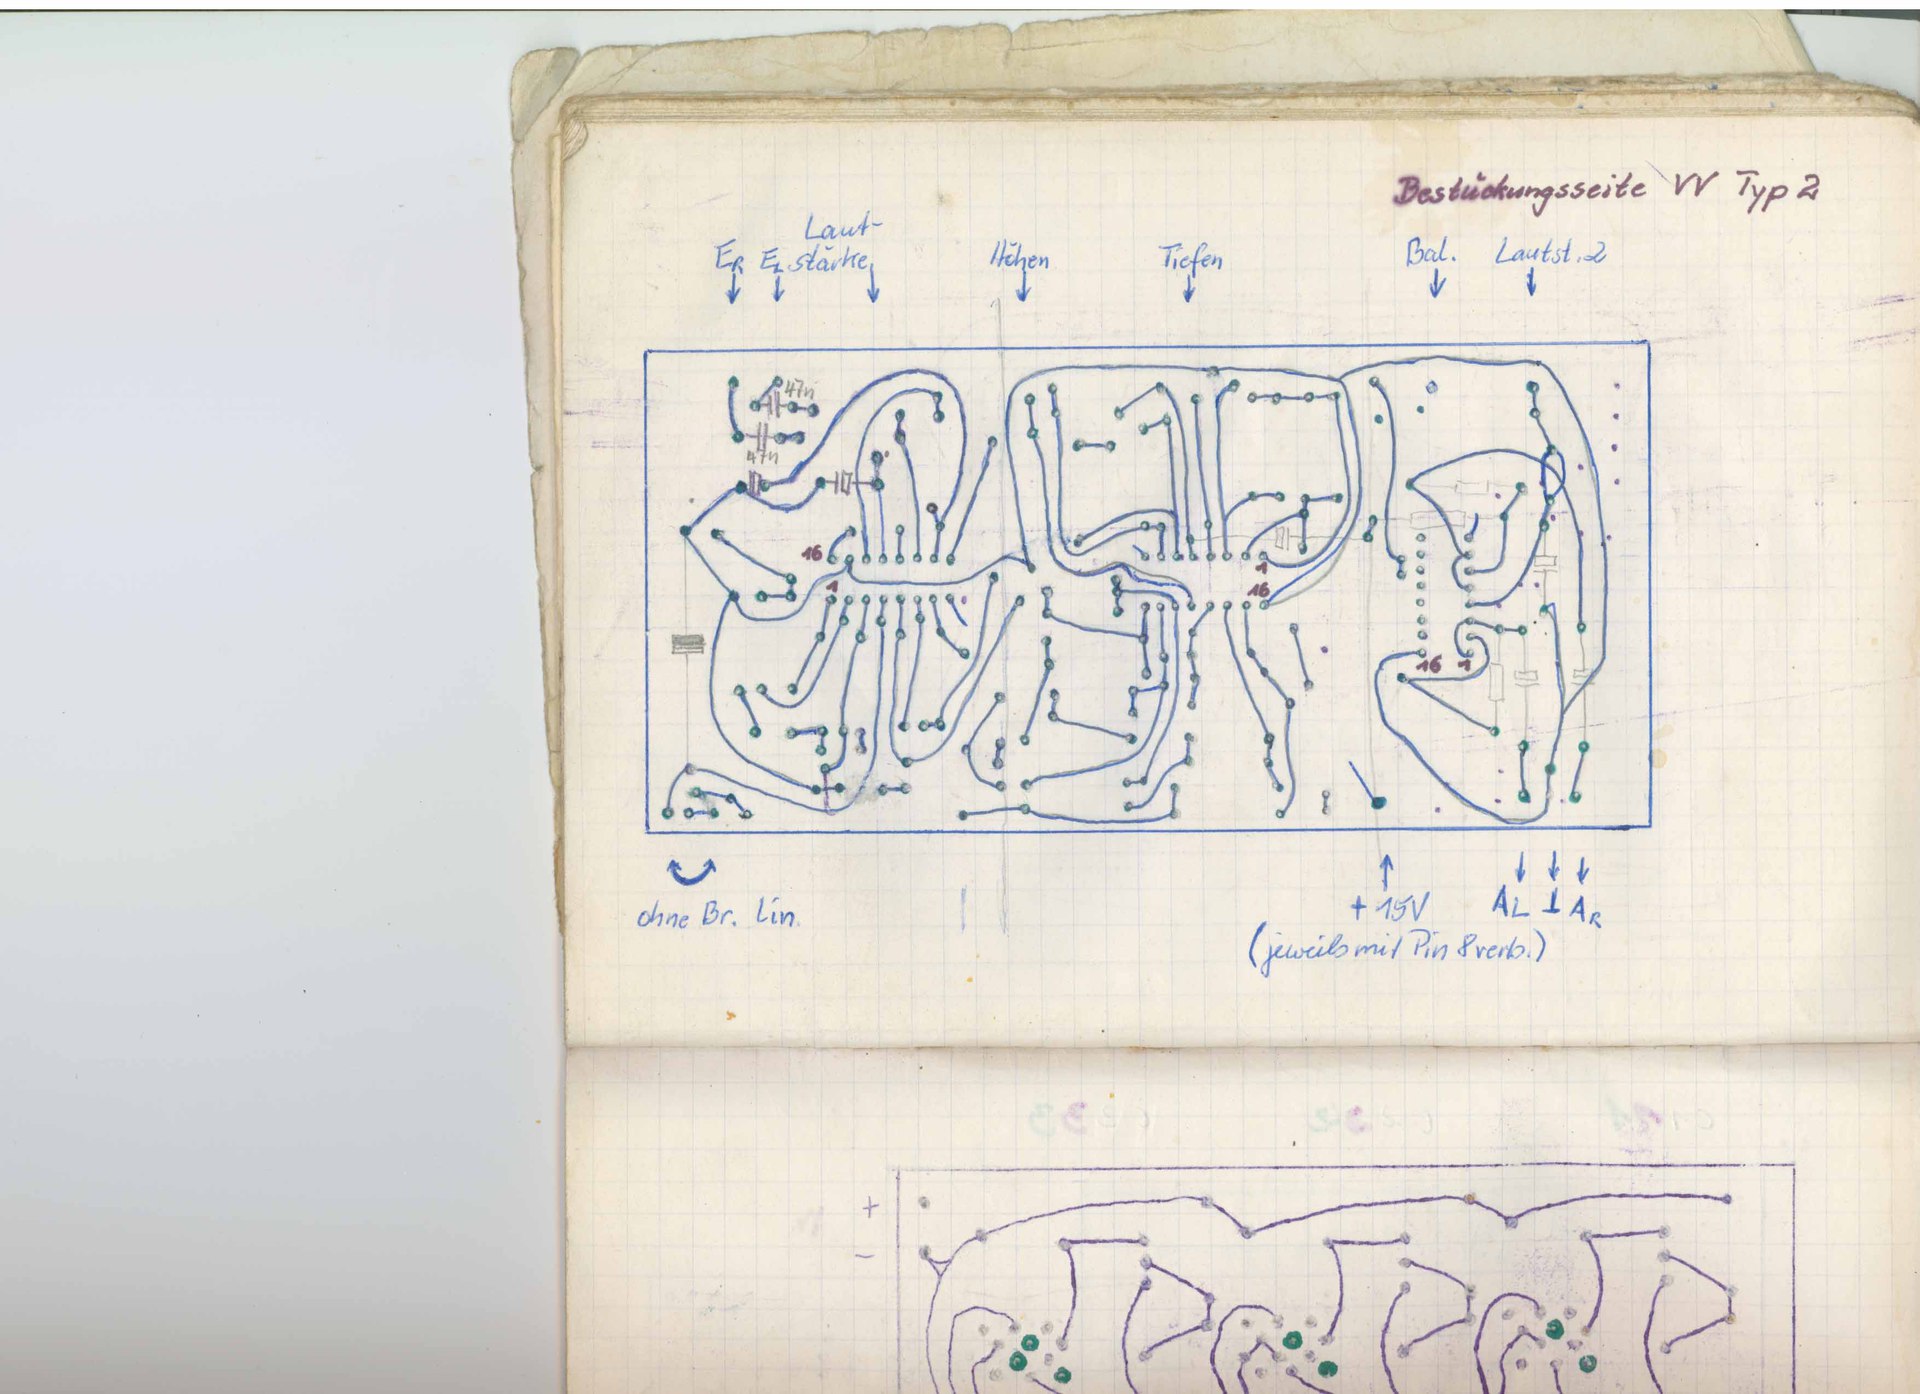 Bestückungsseite VV Typ 2
Laut-
ER EL stärke Höhen Tiefen Bal. Lautst. 2
47n
47n
16
1
1
16
16 1
ohne Br. Lin. + 15V AL ⊥ AR
(jeweils mit Pin 8 verb.)
+
-